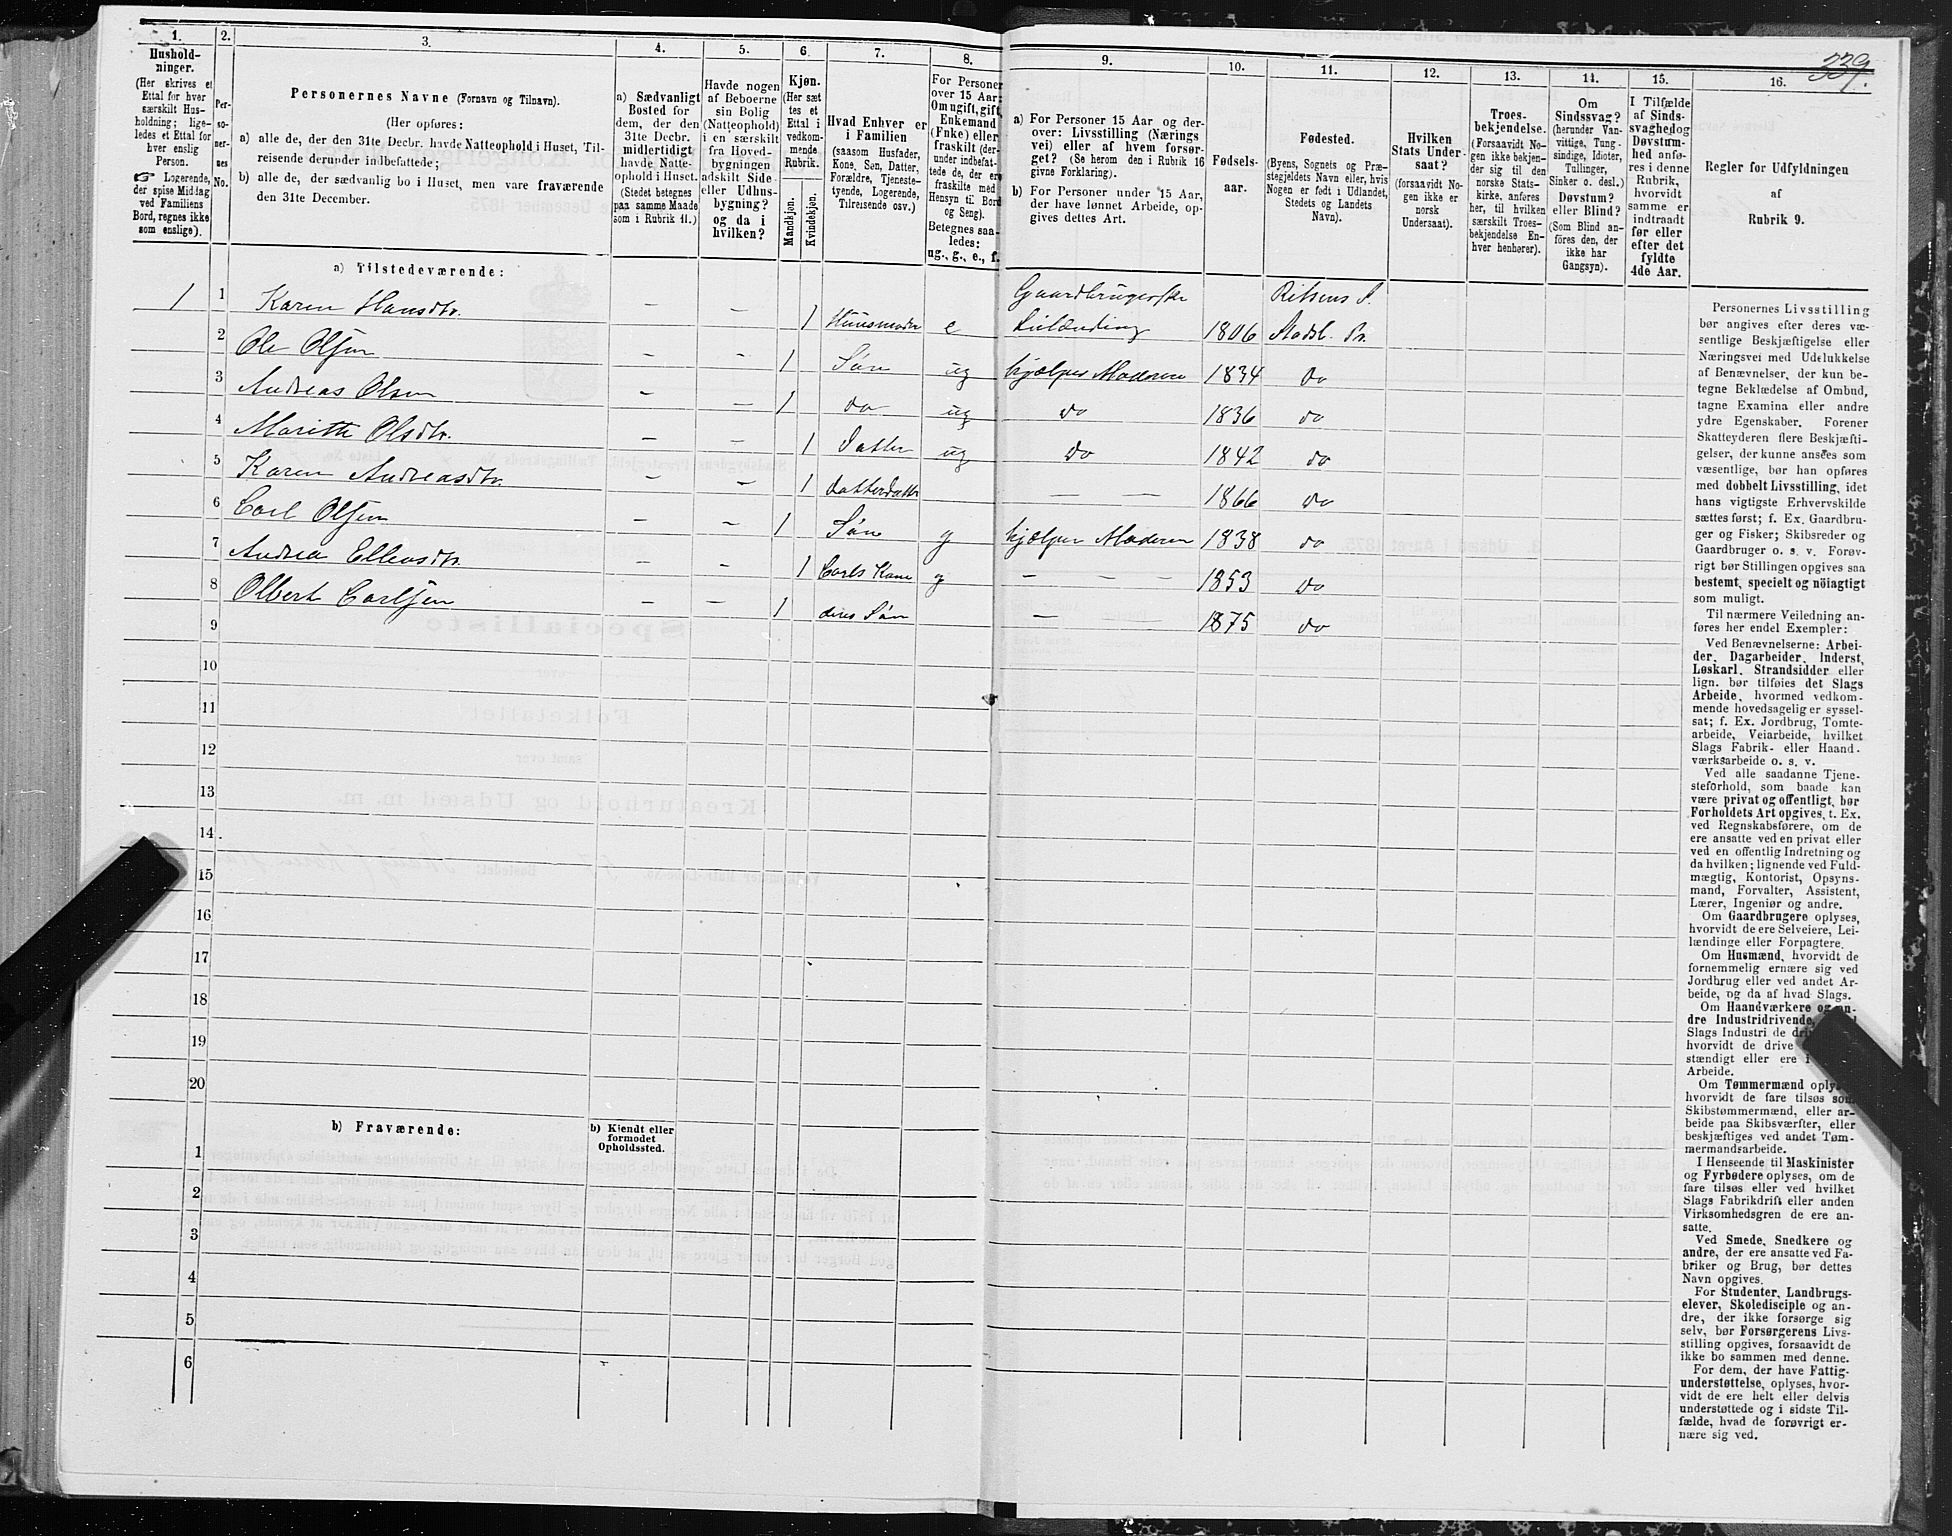 339.
1. 2. 3. 4. 5. 6. 7. 8. 9. 10. 11. 12. 13. 14. 15. 16.
Hushold-
ninger.
(Her skrives et
Ettal for hver
særskilt Hus-
holdning; lige-
ledes et Ettal for
hver enslig
Person.
☞ Logerende,
der spise Middag
ved Familiens
Bord, regnes ikke
som enslige).
Per-
so-
ner-
nes
No.
Personernes Navne (Fornavn og Tilnavn).
(Her opføres:
a) alle de, der den 31te Decbr. havde Natteophold i Huset, Til-
reisende derunder indbefattede;
b) alle de, der sædvanlig bo i Huset, men vare fraværende
den 31te December.
a) Sædvanligt
Bosted for
dem, der den
31te Decbr.
midlertidigt
havde Natte-
ophold i Huset.
(Stedet betegnes
paa samme Maade
som i Rubrik 11.)
Havde nogen
af Beboerne
sin Bolig
(Natteophold)
i en særskilt
fra Hoved-
bygningen
adskilt Side-
eller Udhus-
bygning?
og da i
hvilken?
Kjøn.
(Her sæt
tes et
Ettal i
vedkom-
mende
Rubrik.
Mandkjøn.
Kvindekjøn.
Hvad Enhver er
i Familien
(saasom Husfader,
Kone, Søn, Datter,
Forældre, Tjeneste-
tyende, Logerende,
Tilreisende osv.)
For Personer
over 15 Aar:
Om ugift, gift,
Enkemand
(Enke) eller
fraskilt (der-
under indbefat-
tede de, der ere
fraskilte med
Hensyn til Bord
og Seng).
Betegnes saa-
ledes:
ug., g., e., f.
a) For Personer 15 Aar og der-
over: Livsstilling (Nærings
vei) eller af hvem forsør-
get? (Se herom den i Rubrik 16
givne Forklaring).
b) For Personer under 15 Aar,
der have lønnet Arbeide, op-
gives dettes Art.
Fødsels-
aar.
Fødested.
(Byens, Sognets og Præ-
stegjeldets Navn eller, hvis
Nogen er født i Udlandet,
Stedets og Landets
Navn).
Hvilken
Stats Under-
saat?
(forsaavidt No-
gen ikke er
norsk
Undersaat).
Troes-
bekjendelse.
(Forsaavidt No-
gen ikke bekjen-
der sig til den
norske Stats-
kirke, anføres
her, til hvilken
særskilt Troes-
bekjendelse En-
hver henhører).
Om
Sindssvag?
(herunder Van-
vittige, Tung-
sindige, Idioter,
Tullinger,
Sinker o. desl.)
Døvstum?
eller Blind?
(Som Blind an-
føres den, der
ikke har
Gangsyn).
I Tilfælde
af Sinds-
svaghed og
Døvstum-
hed anfø-
res i denne
Rubrik,
hvorvidt
samme er
indtraadt
før eller
efter det
fyldte
4de Aar.
Regler for Udfyldningen
af
Rubrik 9.
a) Tilstedeværende:
1 1 Karen Hansdtr. — — 1 Huusmoder e Gaardbrugerske Leilænding 1806 Ritsens S. Stadsb. Pr.
2 Ole Olsen — — 1 Søn ug hjælper Moderen 1834 do
3 Andreas Olsen — — 1 do ug do 1836 do
4 Marith Olsdtr. — — 1 datter ug do 1842 do
5 Karen Andreasdtr. — — 1 datterdatter — — 1866 do
6 Carl Olsen — — 1 Søn g hjælper Moderen 1838 do
7 Andrea Ellensdtr. — — 1 Carls Kone g — — — 1853 do
8 Olbert Carlsen — — 1 deres Søn — 1875 do
9
10
11
12
13
14
15
16
17
18
19
20
b) Fraværende:
b) Kjendt eller
formodet
Opholdssted.
1
2
3
4
5
6
Personernes Livsstilling
bør angives efter deres væ-
sentlige Beskjæftigelse eller
Næringsvei med Udelukkelse
af Benævnelser, der kun be-
tegne Beklædelse af Ombud,
tagne Examina eller andre
ydre Egenskaber. Forener
Skatteyderen flere Beskjæfti-
gelser, der kunne ansées som
væsentlige, bør han opføres
med dobbelt Livsstilling, idet
hans vigtigste Erhvervskilde
sættes først; f. Ex. Gaardbru-
ger og Fisker; Skibsreder og
Gaardbruger o. s. v. Forøv-
rigt bør Stillingen opgives saa
bestemt, specielt og nöiagtigt
som muligt.
Til nærmere Veiledning an-
føres her endel Exempler:
Ved Benævnelserne: Arbei-
der, Dagarbeider, Inderst,
Løskarl, Strandsidder eller
lign. bør tilføies det Slags
Arbeide, hvormed vedkom-
mende hovedsagelig er syssel-
sat; f. Ex. Jordbrug, Tomte-
arbeide, Veiarbeide, hvilket
Slags Fabrik- eller Haand-
værksarbeide o. s. v.
Ved alle saadanne Tjene-
steforhold, som baade kan
være privat og offentligt, bør
Forholdets Art opgives, t. Ex.
ved Regnskabsførere, om de
ere ansatte ved en privat eller
ved en offentlig Indretning og
da hvilken; lignende ved Fuld-
mægtig, Kontorist, Opsyns-
mand, Forvalter, Assistent,
Lærer, Ingeniør og andre.
Om Gaardbrugere oplyses,
hvorvidt de ere Selveiere, Lei-
lændinge eller Forpagtere.
Om Husmænd, hvorvidt de
fornemmelig ernære sig ved
Jordbrug eller ved andet Ar-
beide, og da af hvad Slags.
Om Haandværkere og an-
dre Industridrivende,
Slags Industri de
hvorvidt de drive
stændigt eller ere i
Arbeide.
Om Tømmermænd oplyses
hvorvidt de fare tilsøs som
Skibstømmermænd, eller ar-
beide paa Skibsværfter, eller
beskjæftiges ved andet Tøm-
mermandsarbeide.
I Henseende til Maskinister
og Fyrbødere oplyses, om de
fare tilsøs eller ved hvilket
Slags Fabrikdrift eller anden
Virksomhedsgren de ere an-
satte.
Ved Smede, Snedkere og
andre, der ere ansatte ved Fa-
briker og Brug, bør dettes
Navn opgives.
For Studenter, Landbrugs-
elever, Skoledisciple og an-
dre, der ikke forsørge sig
selv, bør Forsørgerens Livs-
stilling opgives, forsaavidt de
ikke bo sammen med denne.
For dem, der have Fattig-
understøttelse, oplyses, hvor-
vidt de ere helt eller delvis
understøttede og i sidste Til-
fælde, hvad de forøvrigt er-
nære sig ved.